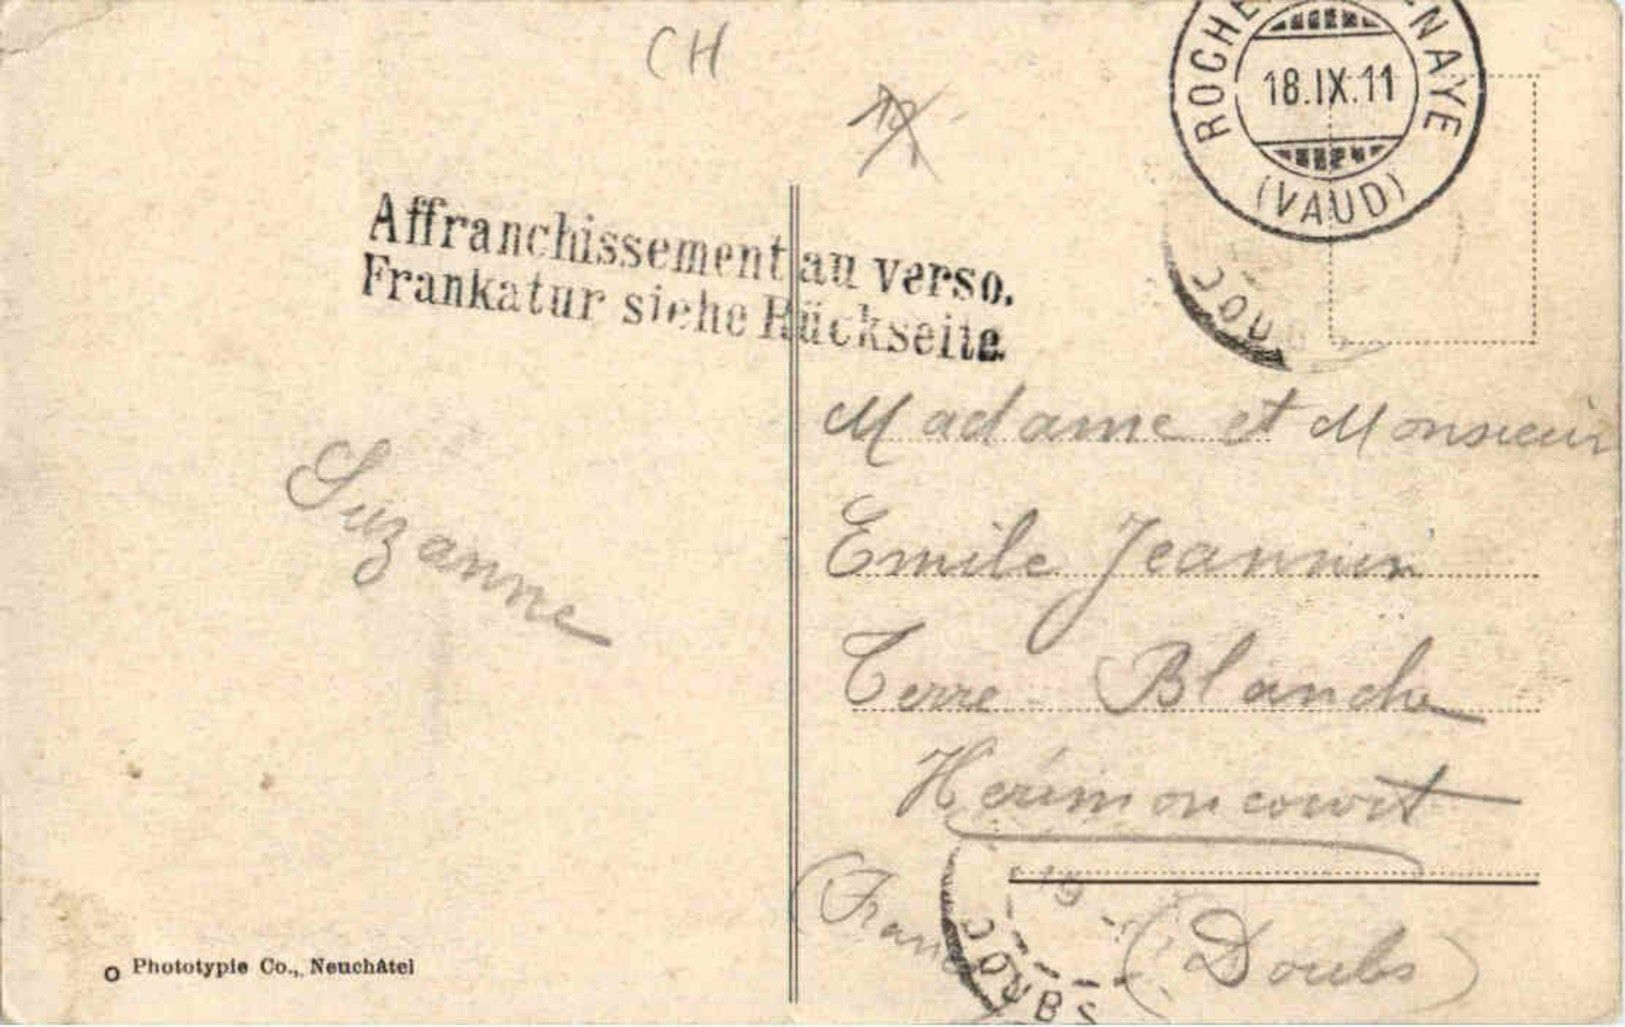 CH
ROCHE NAYE
18.IX.11
(VAUD)
Affranchissement au verso.
Frankatur siehe Rückseite.
DOUB
Suzanne
Madame et Monsieur
Emile Jeannin
Terre Blanche
Herimoncourt
(France
(Doubs)
19
DOUBS
Phototypie Co., Neuchâtel